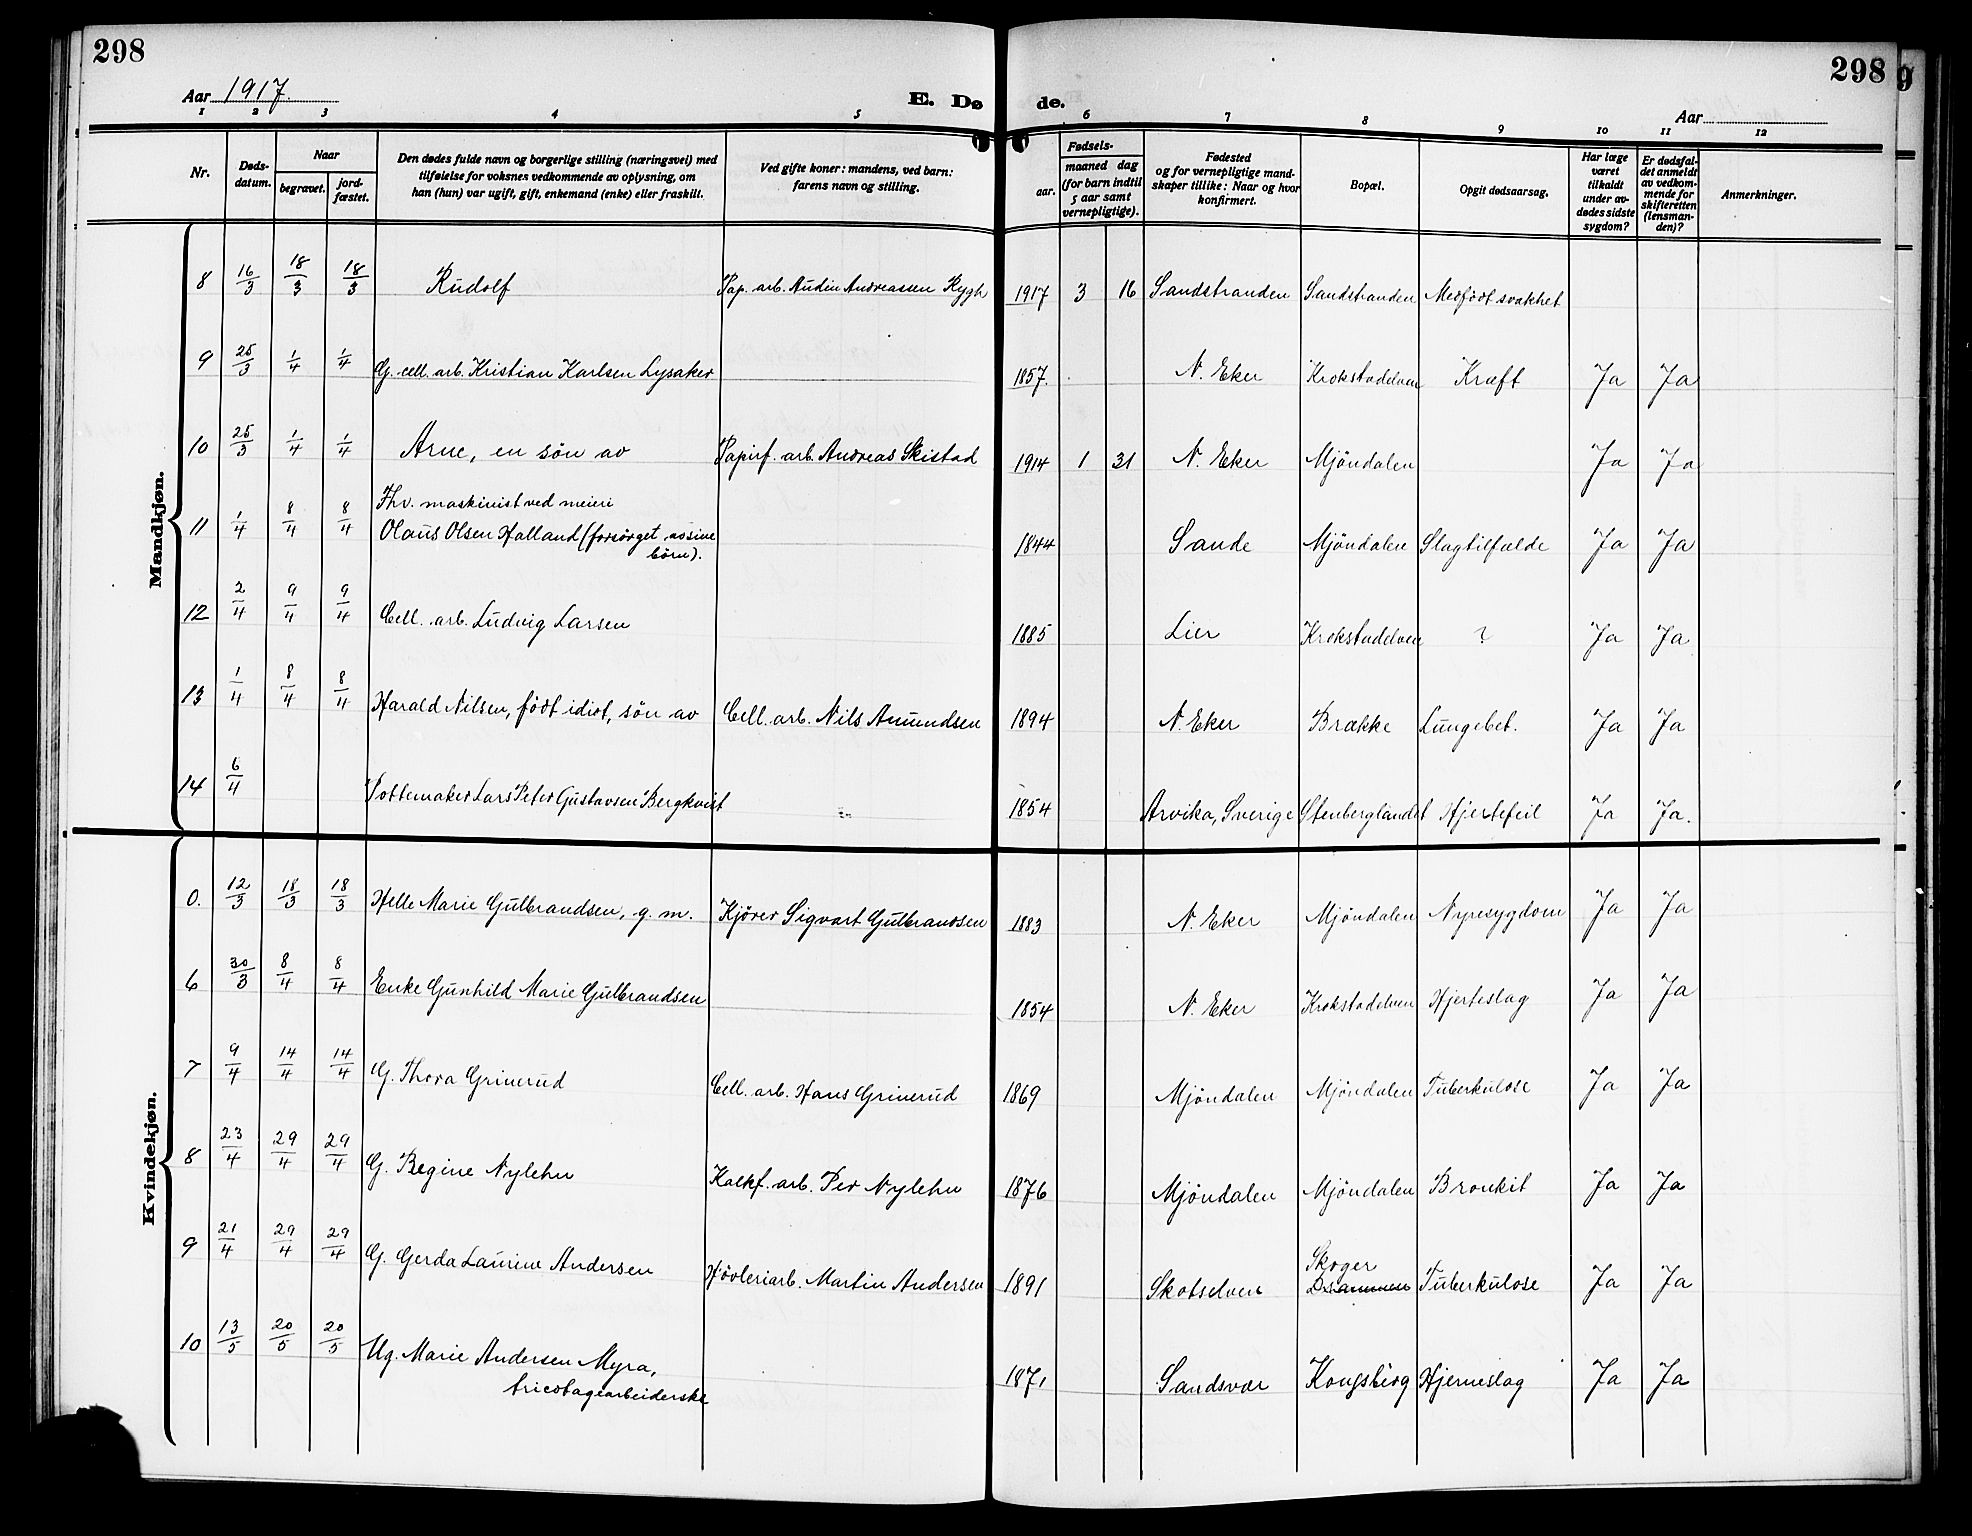 298
298
Aar 1917.
E. Dø
de.
Aar
1 2 3 4 5 6 7 8 9 10 11 12
Nr.
Døds-
datum.
Naar
begravet.
jord-
fæstet.
Den dødes fulde navn og borgerlige stilling (næringsvei) med
tilføielse for voksnes vedkommende av oplysning, om
han (hun) var ugift, gift, enkemand (enke) eller fraskilt.
Ved gifte koner: mandens, ved barn:
farens navn og stilling.
Fødsels-
aar.
maaned dag
(for barn indtil
5 aar samt
vernepligtige).
Fødested
og for vernepligtige mand-
skaper tillike: Naar og hvor
konfirmert.
Bopæl.
Opgit dødsaarsag.
Har læge
været
tilkaldt
under av-
dødes sidste
sygdom?
Er dødsfal-
det anmeldt
av vedkom-
mende for
skifteretten
(lensman-
den)?
Anmerkninger.
Mandkjøn.
8 16/3 18/3 18/3 Rudolf Pap. arb. Audin Andreassen Rygh 1917 3 16 Sandstranden Sandstranden Medfödt svakhet
9 25/3 1/4 1/4 G. cell. arb. Kristian Karlsen Lysaker 1857 N. Eker Krokstadelven Kræft Ja Ja
10 25/3 1/4 1/4 Arne, en sön av Papirf. arb. Andreas Skistad 1914 1 31 N. Eker Mjöndalen Ja Ja
Fhv. maskinist ved meieri
11 1/4 8/4 8/4 Olaus Olsen Holland (forsörget av sine 1844 Sande Mjöndalen Slagtilfælde Ja Ja
börn).
12 2/4 9/4 9/4 Cell. arb. Ludvig Larsen 1885 Lier Krokstadelven ? Ja Ja
13 1/4 8/4 8/4 Harald Nilsen, födt idiot, sön av Cell. arb. Nils Amundsen 1894 N. Eker Brække Lungebet. Ja Ja
14 6/4 Pottemaker Lars Peter Gustavsen Bergkvist 1854 Arvika, Sverige Stenberglandet Hjertefeil Ja Ja.
Kvindekjøn.
0. 12/3 18/3 18/3 Helle Marie Gulbrandsen, g. m. Kjörer Sigvart Gulbrandsen 1883 N. Eker Mjöndalen Nyresygdom Ja Ja
6 30/3 8/4 8/4 Enke Gunhild Marie Gulbrandsen 1854 N. Eker Krokstadelven Hjerteslag Ja Ja
7 9/4 14/4 14/4 G. Thora Grinerud Cell. arb. Hans Grinerud 1869 Mjöndalen Mjöndalen Tuberkulose Ja Ja
8 23/4 29/4 29/4 G. Regine Nylehn Kalkf. arb. Per Nylehn 1876 Mjöndalen Mjöndalen Bronkit Ja Ja
Skoger
9 21/4 29/4 29/4 G. Gerda Laurine Andersen Hövleriarb. Martin Andersen 1891 Skotselven Drammen Tuberkulose Ja Ja
10 13/5 20/5 20/5 Ug. Marie Andersen Myra, 1871 Sandsvær Kongsberg Hjerneslag Ja Ja
tricotagearbeiderske